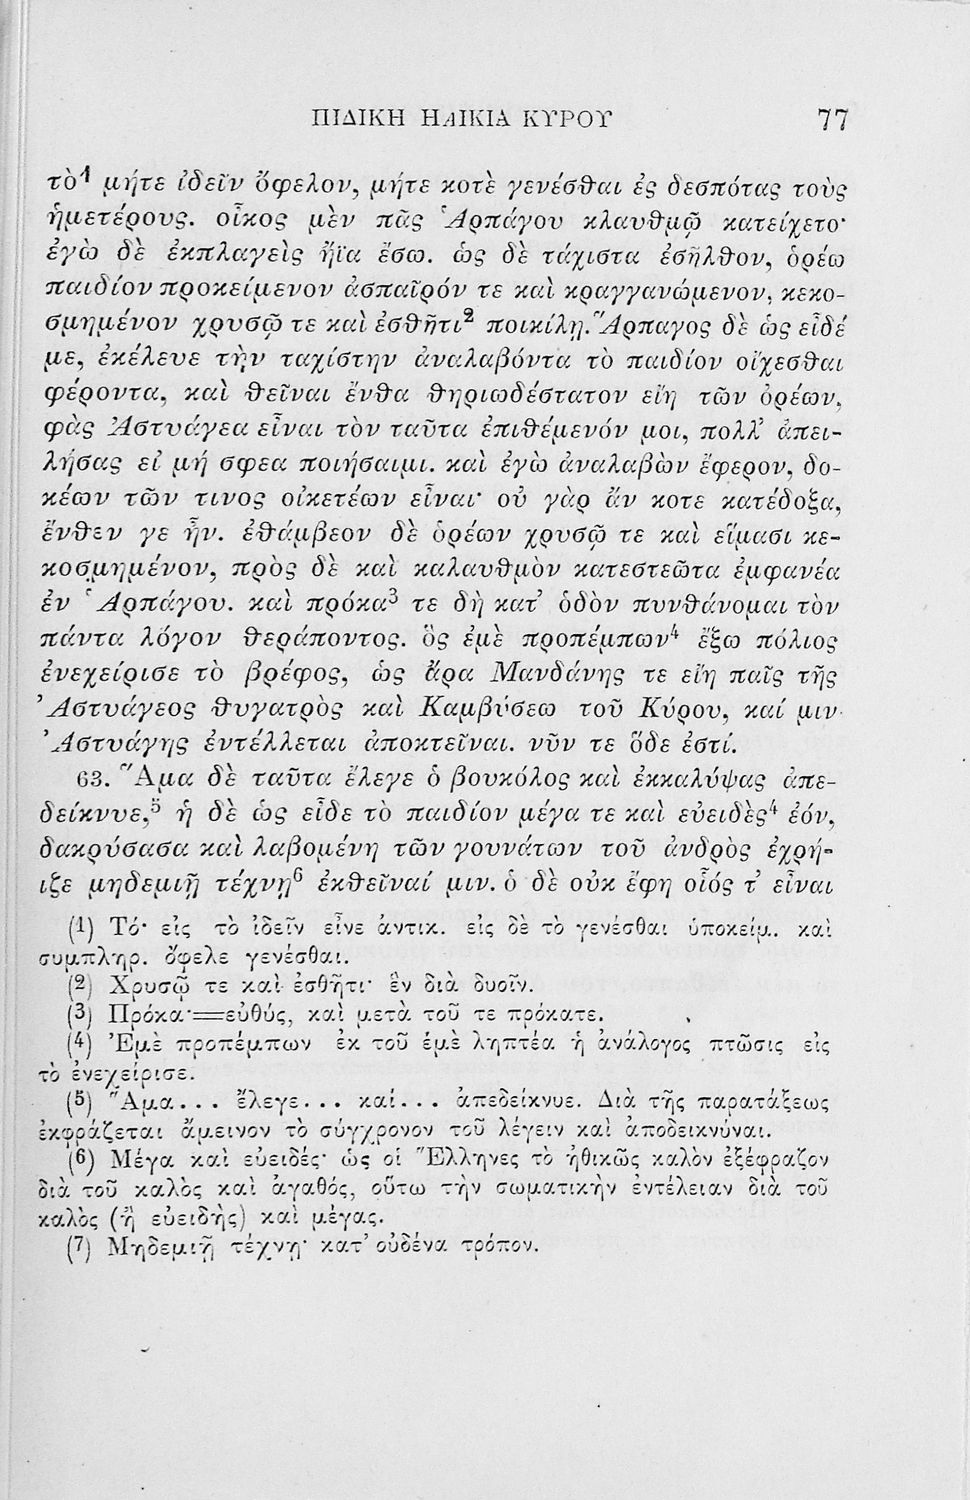 ΠΙΔΙΚΗ ΗΛΙΚΙΑ ΚΥΡΟΥ 77
τὸ¹ μήτε ἰδεῖν ὄφελον, μήτε κοτὲ γενέσθαι ἐς δεσπότας τοὺς
ἡμετέρους. οἶκος μὲν πᾶς Ἁρπάγου κλαυθμῷ κατείχετο·
ἐγὼ δὲ ἐκπλαγεὶς ἤϊα ἔσω. ὡς δὲ τάχιστα ἐσῆλθον, ὁρέω
παιδίον προκείμενον ἀσπαῖρόν τε καὶ κραγγανώμενον, κεκο-
σμημένον χρυσῷ τε καὶ ἐσθῆτι² ποικίλῃ. Ἅρπαγος δὲ ὡς εἶδέ
με, ἐκέλευε τὴν ταχίστην ἀναλαβόντα τὸ παιδίον οἴχεσθαι
φέροντα, καὶ θεῖναι ἔνθα θηριωδέστατον εἴη τῶν ὀρέων,
φὰς Ἀστυάγεα εἶναι τὸν ταῦτα ἐπιθέμενόν μοι, πολλ’ ἀπει-
λήσας εἰ μή σφεα ποιήσαιμι. καὶ ἐγὼ ἀναλαβὼν ἔφερον, δο-
κέων τῶν τινος οἰκετέων εἶναι· οὐ γὰρ ἄν κοτε κατέδοξα,
ἔνθεν γε ἦν. ἐθάμβεον δὲ ὁρέων χρυσῷ τε καὶ εἵμασι κε-
κοσμημένον, πρὸς δὲ καὶ καλαυθμὸν κατεστεῶτα ἐμφανέα
ἐν Ἁρπάγου. καὶ πρόκα³ τε δὴ κατ’ ὁδὸν πυνθάνομαι τὸν
πάντα λόγον θεράποντος. ὃς ἐμὲ προπέμπων⁴ ἔξω πόλιος
ἐνεχείρισε τὸ βρέφος, ὡς ἄρα Μανδάνης τε εἴη παῖς τῆς
Ἀστυάγεος θυγατρὸς καὶ Καμβύσεω τοῦ Κύρου, καί μιν
Ἀστυάγης ἐντέλλεται ἀποκτεῖναι. νῦν τε ὅδε ἐστί.
63. Ἅμα δὲ ταῦτα ἔλεγε ὁ βουκόλος καὶ ἐκκαλύψας ἀπε-
δείκνυε,⁵ ἡ δὲ ὡς εἶδε τὸ παιδίον μέγα τε καὶ εὐειδὲς⁴ ἐόν,
δακρύσασα καὶ λαβομένη τῶν γουνάτων τοῦ ἀνδρὸς ἐχρή-
ιζε μηδεμιῇ τέχνῃ⁶ ἐκθεῖναί μιν. ὁ δὲ οὐκ ἔφη οἷός τ’ εἶναι
(1) Τό· εἰς τὸ ἰδεῖν εἶνε ἀντικ. εἰς δὲ τὸ γενέσθαι ὑποκείμ. καὶ
συμπληρ. ὄφελε γενέσθαι.
(2) Χρυσῷ τε καὶ ἐσθῆτι· ἓν διὰ δυοῖν.
(3) Πρόκα·=εὐθύς, καὶ μετὰ τοῦ τε πρόκατε.
(4) Ἐμὲ προπέμπων ἐκ τοῦ ἐμὲ ληπτέα ἡ ἀνάλογος πτῶσις εἰς
τὸ ἐνεχείρισε.
(5) Ἅμα... ἔλεγε... καί... ἀπεδείκνυε. Διὰ τῆς παρατάξεως
ἐκφράζεται ἄμεινον τὸ σύγχρονον τοῦ λέγειν καὶ ἀποδεικνύναι.
(6) Μέγα καὶ εὐειδές· ὡς οἱ Ἕλληνες τὸ ἠθικῶς καλὸν ἐξέφραζον
διὰ τοῦ καλὸς καὶ ἀγαθός, οὕτω τὴν σωματικὴν ἐντέλειαν διὰ τοῦ
καλὸς (ἢ εὐειδὴς) καὶ μέγας.
(7) Μηδεμιῇ τέχνῃ· κατ’ οὐδένα τρόπον.